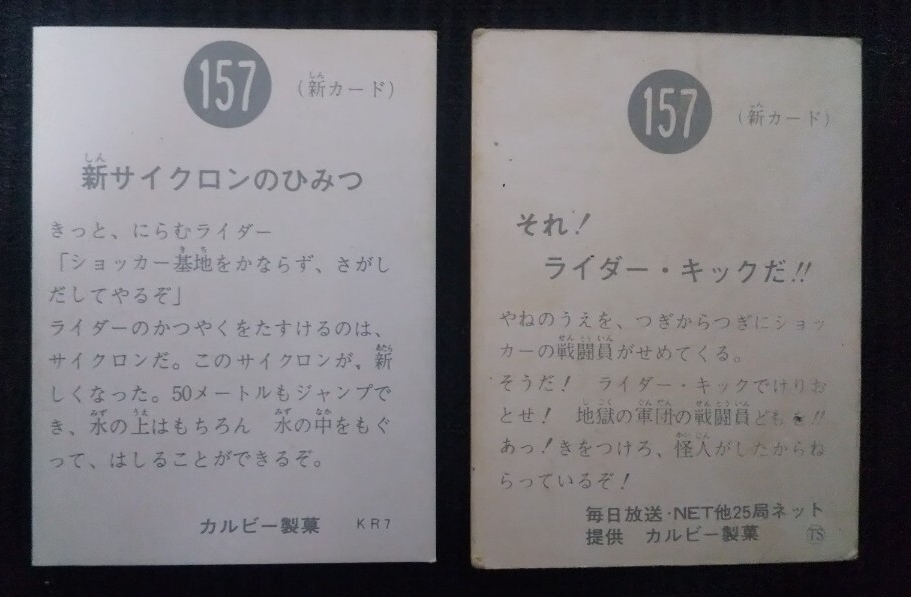 157
(新カード)
新サイクロンのひみつ
きっと、にらむライダー
「ショッカー基地をかならず、さがし
だしてやるぞ」
ライダーのかつやくをたすけるのは、
サイクロンだ。このサイクロンが、新
しくなった。50メートルもジャンプで
き、水の上はもちろん 水の中をもぐ
って、はしることができるぞ。
カルビー製菓 KR7
157
(新カード)
それ!
ライダー・キックだ!!
やねのうえを、つぎからつぎにショッ
カーの戦闘員がせめてくる。
そうだ! ライダー・キックでけりお
とせ! 地獄の軍団の戦闘員ども!!
あっ!きをつけろ、怪人がしたからね
らっているぞ!
毎日放送・NET他25局ネット
提供 カルビー製菓 TS